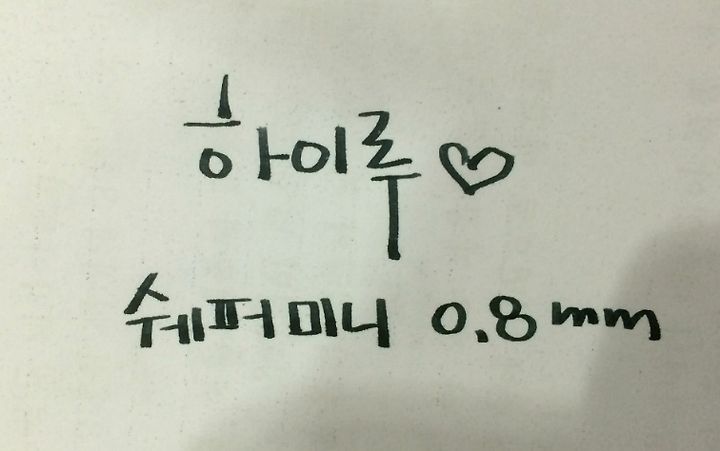 하이루♡
쉐퍼미니 0.8mm